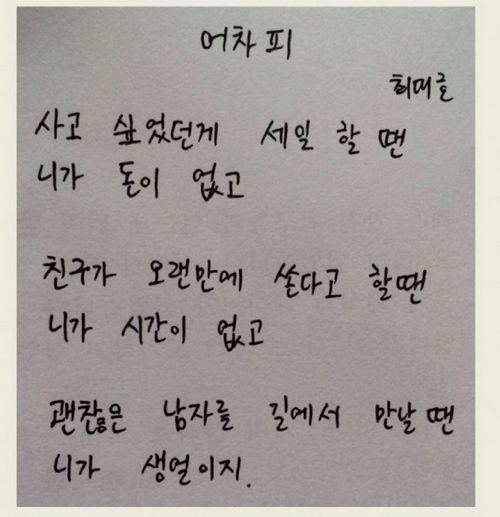 어차피
최대호
사고 싶었던게 세일 할 땐
니가 돈이 없고
친구가 오랜만에 쏜다고 할땐
니가 시간이 없고
괜찮은 남자를 길에서 만날 땐
니가 생얼이지.